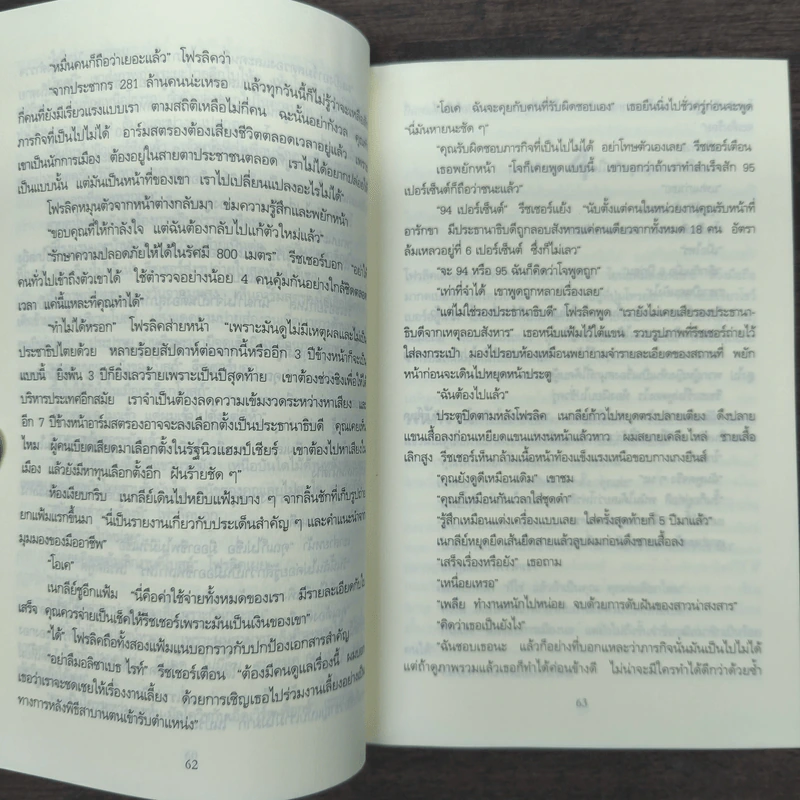 "หมื่นคนก็ถือว่าเยอะแล้ว" โฟรลิคว่า
"จากประชากร 281 ล้านคนน่ะเหรอ แล้วทุกวันนี้ก็ไม่รู้ว่าจะเหลือ
กี่คนที่ยังมีเรี่ยวแรงแบบเรา ตามสถิติเหลือไม่กี่คน ฉะนั้นอย่ากังวล
ภารกิจที่เป็นไปไม่ได้ อาร์มสตรองต้องเสี่ยงชีวิตตลอดเวลาอยู่แล้ว เพราะ
เขาเป็นนักการเมือง ต้องอยู่ในสายตาประชาชนตลอด เราไม่ได้อยาก
เป็นแบบนั้น แต่มันเป็นหน้าที่ของเขา เราไปเปลี่ยนแปลงอะไรไม่ได้"
โฟรลิคหมุนตัวจากหน้าต่างกลับมา ข่มความรู้สึกและพยักหน้า
"ขอบคุณที่ให้กำลังใจ แต่ฉันต้องกลับไปแก้ตัวใหม่แล้ว"
"รักษาความปลอดภัยให้ได้ในรัศมี 800 เมตร" รีชเชอร์บอก "อย่าให้
คนทั่วไปเข้าถึงตัวเขาได้ ใช้ตำรวจอย่างน้อย 4 คนคุ้มกันอย่างใกล้ชิดตลอด
เวลา แค่นี้แหละที่คุณทำได้"
"ทำไม่ได้หรอก" โฟรลิคส่ายหน้า "เพราะมันดูไม่มีเหตุผลและไม่เป็น
ประชาธิปไตยด้วย หลายร้อยสัปดาห์ต่อจากนี้หรืออีก 3 ปีข้างหน้าก็จะเป็น
แบบนี้ ยิ่งพ้น 3 ปีก็ยิ่งเลวร้ายเพราะเป็นปีสุดท้าย เขาต้องช่วงชิงเพื่อให้ได้
บริหารประเทศอีกสมัย เราจำเป็นต้องลดความเข้มงวดระหว่างหาเสียง และ
อีก 7 ปีข้างหน้าอาร์มสตรองอาจจะลงเลือกตั้งเป็นประธานาธิบดี คุณเคยเห็น
ไหม ผู้คนเบียดเสียดมาเลือกตั้งในรัฐนิวแฮมป์เชียร์ เขาต้องไปหาเสียงใน
เมือง แล้วยังมีหาทุนเลือกตั้งอีก ฝันร้ายชัด ๆ"
ห้องเงียบกริบ เนกลีย์เดินไปหยิบแฟ้มบาง ๆ จากลิ้นชักที่เก็บรูปถ่าย
ยกแฟ้มแรกขึ้นมา "นี่เป็นรายงานเกี่ยวกับประเด็นสำคัญ ๆ และคำแนะนำจาก
มุมมองของมืออาชีพ"
"โอเค"
เนกลีย์ชูอีกแฟ้ม "นี่คือค่าใช้จ่ายทั้งหมดของเรา มีรายละเอียดกับใบ
เสร็จ คุณควรจ่ายเป็นเช็คให้รีชเชอร์เพราะมันเป็นเงินของเขา"
"ได้" โฟรลิคถือทั้งสองแฟ้มแนบอกราวกับปกป้องเอกสารสำคัญ
"อย่าลืมอลิซาเบธ ไรท์" รีชเชอร์เตือน "ต้องมีคนดูแลเรื่องนี้
เธอว่าเราจะชดเชยให้เรื่องงานเลี้ยง ด้วยการเชิญเธอไปร่วมงานเลี้ยงอย่างเป็น
ทางการหลังพิธีสาบานตนเข้ารับตำแหน่ง"
62
"โอเค ฉันจะคุยกับคนที่รับผิดชอบเอง" เธอยืนนิ่งไปชั่วครู่ก่อนจะพูด
"นี่มันหายนะชัด ๆ"
"คุณรับผิดชอบภารกิจที่เป็นไปไม่ได้ อย่าโทษตัวเองเลย" รีชเชอร์เตือน
เธอพยักหน้า "โจก็เคยพูดแบบนี้ เขาบอกว่าถ้าเราทำสำเร็จสัก 95
เปอร์เซ็นต์ก็ถือว่าชนะแล้ว"
"94 เปอร์เซ็นต์" รีชเชอร์แย้ง "นับตั้งแต่คนในหน่วยงานคุณรับหน้าที่
อารักขา มีประธานาธิบดีถูกลอบสังหารแค่คนเดียวจากทั้งหมด 18 คน อัตรา
ล้มเหลวอยู่ที่ 6 เปอร์เซ็นต์ ซึ่งก็ไม่เลว"
"จะ 94 หรือ 95 ฉันก็คิดว่าโจพูดถูก"
"เท่าที่จำได้ เขาพูดถูกหลายเรื่องเลย"
"แต่ไม่ใช่รองประธานาธิบดี" โฟรลิคพูด "เรายังไม่เคยเสียรองประธานา-
ธิบดีจากเหตุลอบสังหาร" เธอหนีบแฟ้มไว้ใต้แขน รวบรูปภาพที่รีชเชอร์ถ่ายไว้
ใส่ลงกระเป๋า มองไปรอบห้องเหมือนพยายามจำรายละเอียดของสถานที่ พยัก
หน้าก่อนจะเดินไปหยุดหน้าประตู
"ฉันต้องไปแล้ว"
ประตูปิดตามหลังโฟรลิค เนกลีย์ก้าวไปหยุดตรงปลายเตียง ดึงปลาย
แขนเสื้อลงก่อนเหยียดแขนแหงนหน้าแล้วหาว ผมสยายเคลียไหล่ ชายเสื้อ
เลิกสูง รีชเชอร์เห็นกล้ามเนื้อหน้าท้องแข็งแรงเหนือขอบกางเกงยีนส์
"คุณยังดูดีเหมือนเดิม" เขาชม
"คุณก็เหมือนกันเวลาใส่ชุดดำ"
"รู้สึกเหมือนแต่งเครื่องแบบเลย ใส่ครั้งสุดท้ายก็ 5 ปีมาแล้ว"
เนกลีย์หยุดยืดเส้นยืดสายแล้วลูบผมก่อนดึงชายเสื้อลง
"เสร็จเรื่องหรือยัง" เธอถาม
"เหนื่อยเหรอ"
"เพลีย ทำงานหนักไปหน่อย จบด้วยการดับฝันของสาวน่าสงสาร"
"คิดว่าเธอเป็นยังไง"
"ฉันชอบเธอนะ แล้วก็อย่างที่บอกแหละว่าภารกิจนั่นมันเป็นไปไม่ได้
แต่ถ้าดูภาพรวมแล้วเธอก็ทำได้ค่อนข้างดี ไม่น่าจะมีใครทำได้ดีกว่าด้วยซ้ำ
63